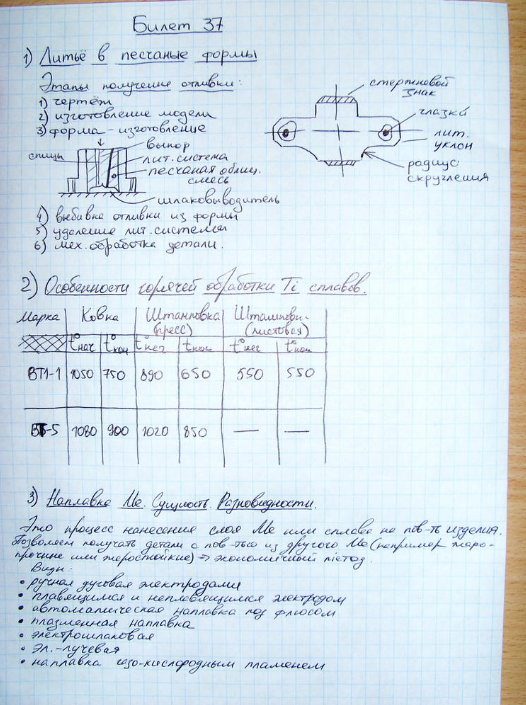 Билет 37
1) Литьё в песчаные формы
Этапы получение отливки:
1) чертёж
2) изготовление модели
3) форма – изготовление
спицы
выпор
лит. система
песчаная облиц.
смесь
шлаковыводитель
стержневой
знак
глазки
лит.
уклон
радиус
скругления
4) выбивка отливки из формы
5) удаление лит. системы
6) мех. обработка детали.
2) Особенности горячей обработки Ti сплавов.
Марка Ковка Штамповка (пресс) Штамповка (листовая)
t°нач t°кон t°нач tкон t°нач t°кон
ВТ1-1 1050 750 890 650 550 550
ВТ-5 1080 900 1020 850 — —
3) Наплавка Ме. Сущность. Разновидности.
Это процесс нанесение слоя Ме или сплава на пов-ть изделия.
Позволяет получать детали с пов-тью из другого Ме (например жаро-
прочные или жаростойкие) → экономичный метод
Виды:
• ручная дуговая электродами
• плавящимся и неплавящимся электродом
• автоматическая наплавка под флюсом
• плазменная наплавка
• электрошлаковая
• эл.-лучевая
• наплавка газо-кислородным пламенем